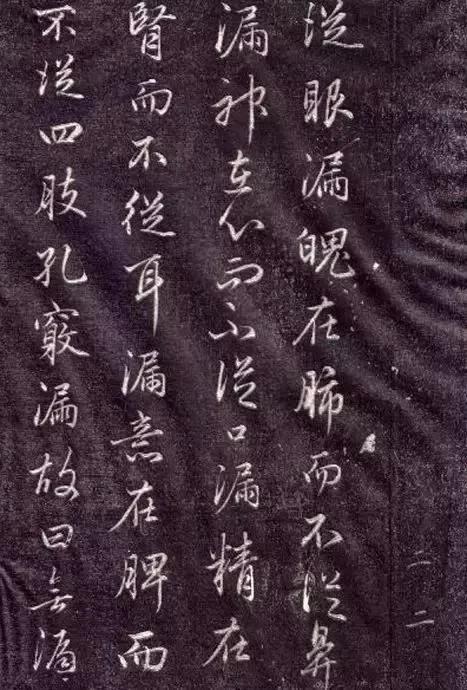 從眼漏魄在肺而不從鼻
漏神在心而不從口漏精在
腎而不從耳漏意在脾而
不從四肢孔竅漏故曰無漏
二二